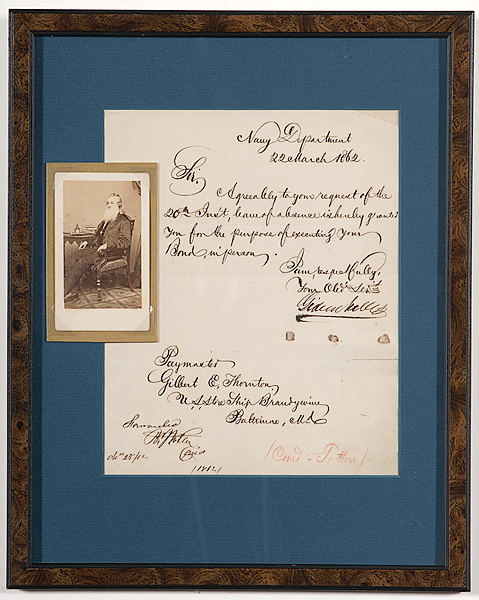 Navy Department
22 March 1862.
Sir,
Agreeably to your request of the
20th Inst, leave of absence is hereby granted
you for the purpose of executing your
Bond, in person.
I am, respectfully,
Your Obt. Servt
Gideon Welles
Paymaster
Gilbert E. Thornton,
U.S. Store Ship Brandywine
Baltimore, Md
Forwarded
25/62
(1812)